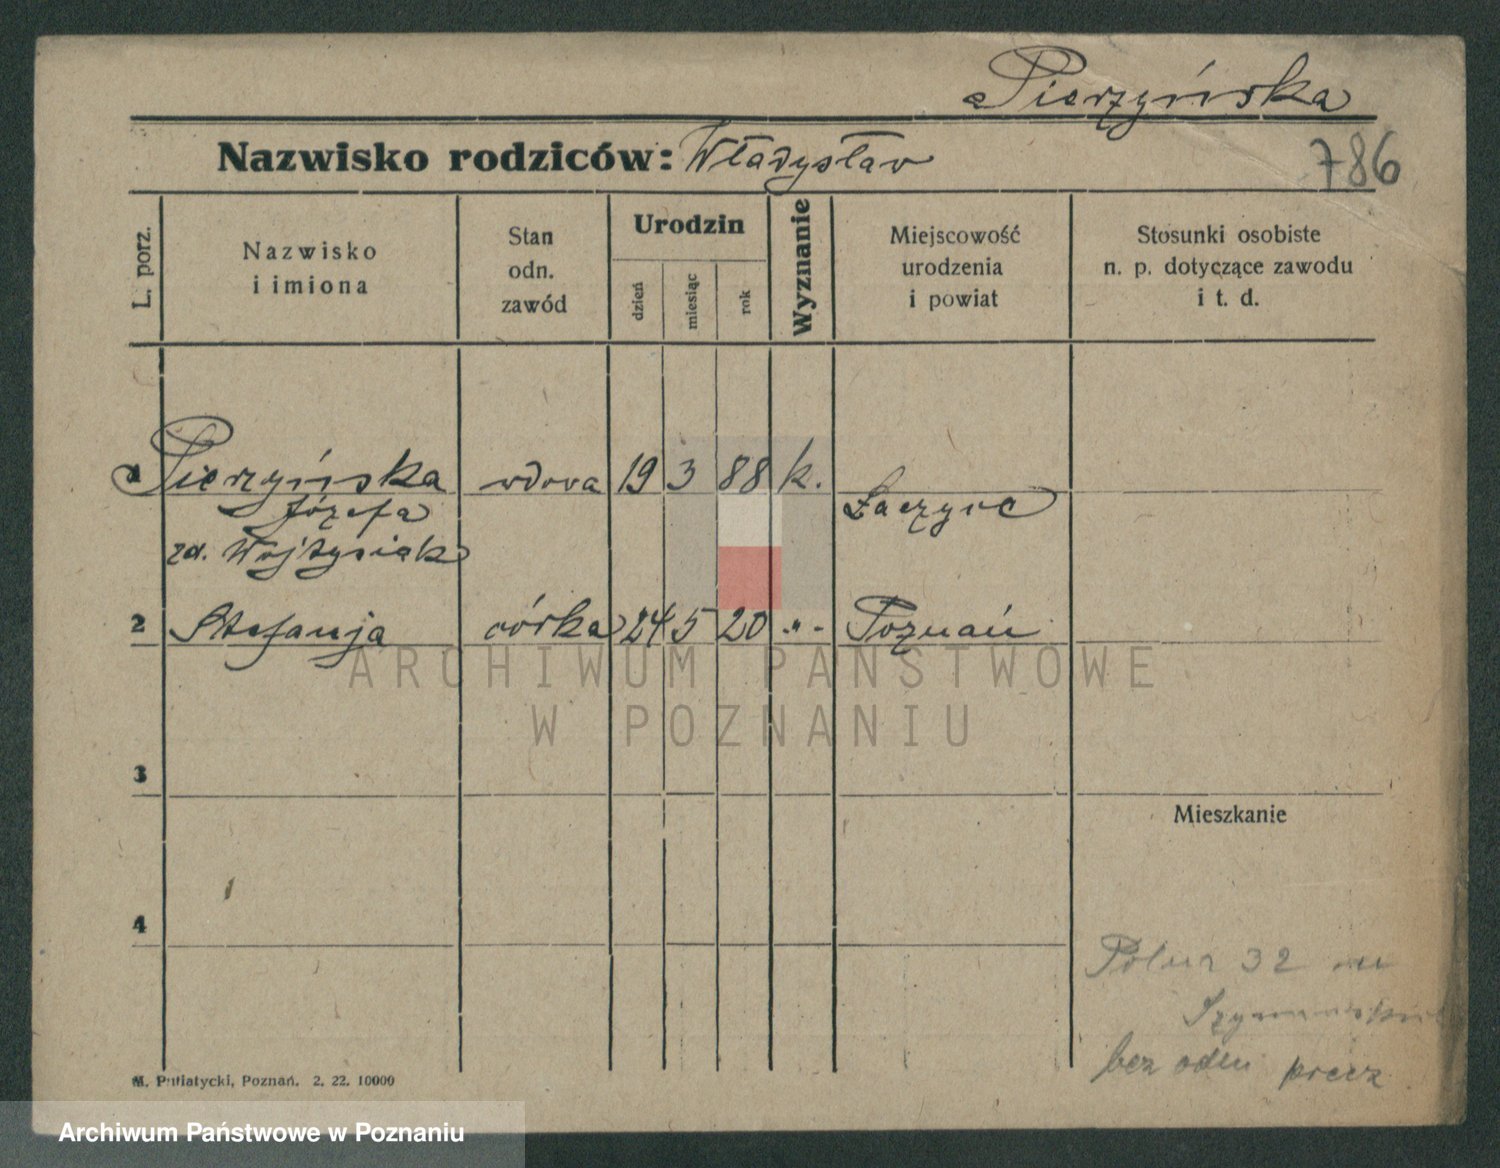 Pierzyńska
Nazwisko rodziców: Władysław
786
L. porz.
Nazwisko
i imiona
Stan
odn.
zawód
Urodzin
dzień
miesiąc
rok
Wyznanie
Miejscowość
urodzenia
i powiat
Stosunki osobiste
n. p. dotyczące zawodu
i t. d.
1 Pierzyńska wdowa 19 3 88 k.
Józefa
zd. Wojtysiak
2 Stefanja córka 24 5 20 -"- Poznań
ARCHIWUM PAŃSTWOWE
W POZNANIU
3
Mieszkanie
4
32
bez precz
M. Putiatycki, Poznań. 2. 22. 10000
Archiwum Państwowe w Poznaniu